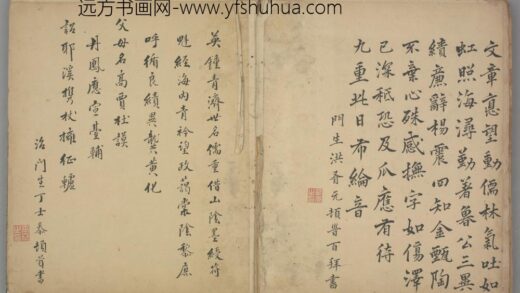 远方书画网-www.yfshuhua.com
文章望動儒林氣吐如
虹照海潯勤著魯公三異
績廉辭楊震四知金甄陶
不棄心殊感撫字如傷澤
已深祗恐及瓜應有待
九重此日布綸音
門生洪元頓首百拜書
英鍾青濟世名儒重借山陰墨綬符
魁經海內青衿望政藹棠陰黎庶
呼循良績異龔黃化
父母名高賈杜謨
丹鳳應宣臺輔
詔耶溪攀杖擁征轤
治門生丁士泰頓首書